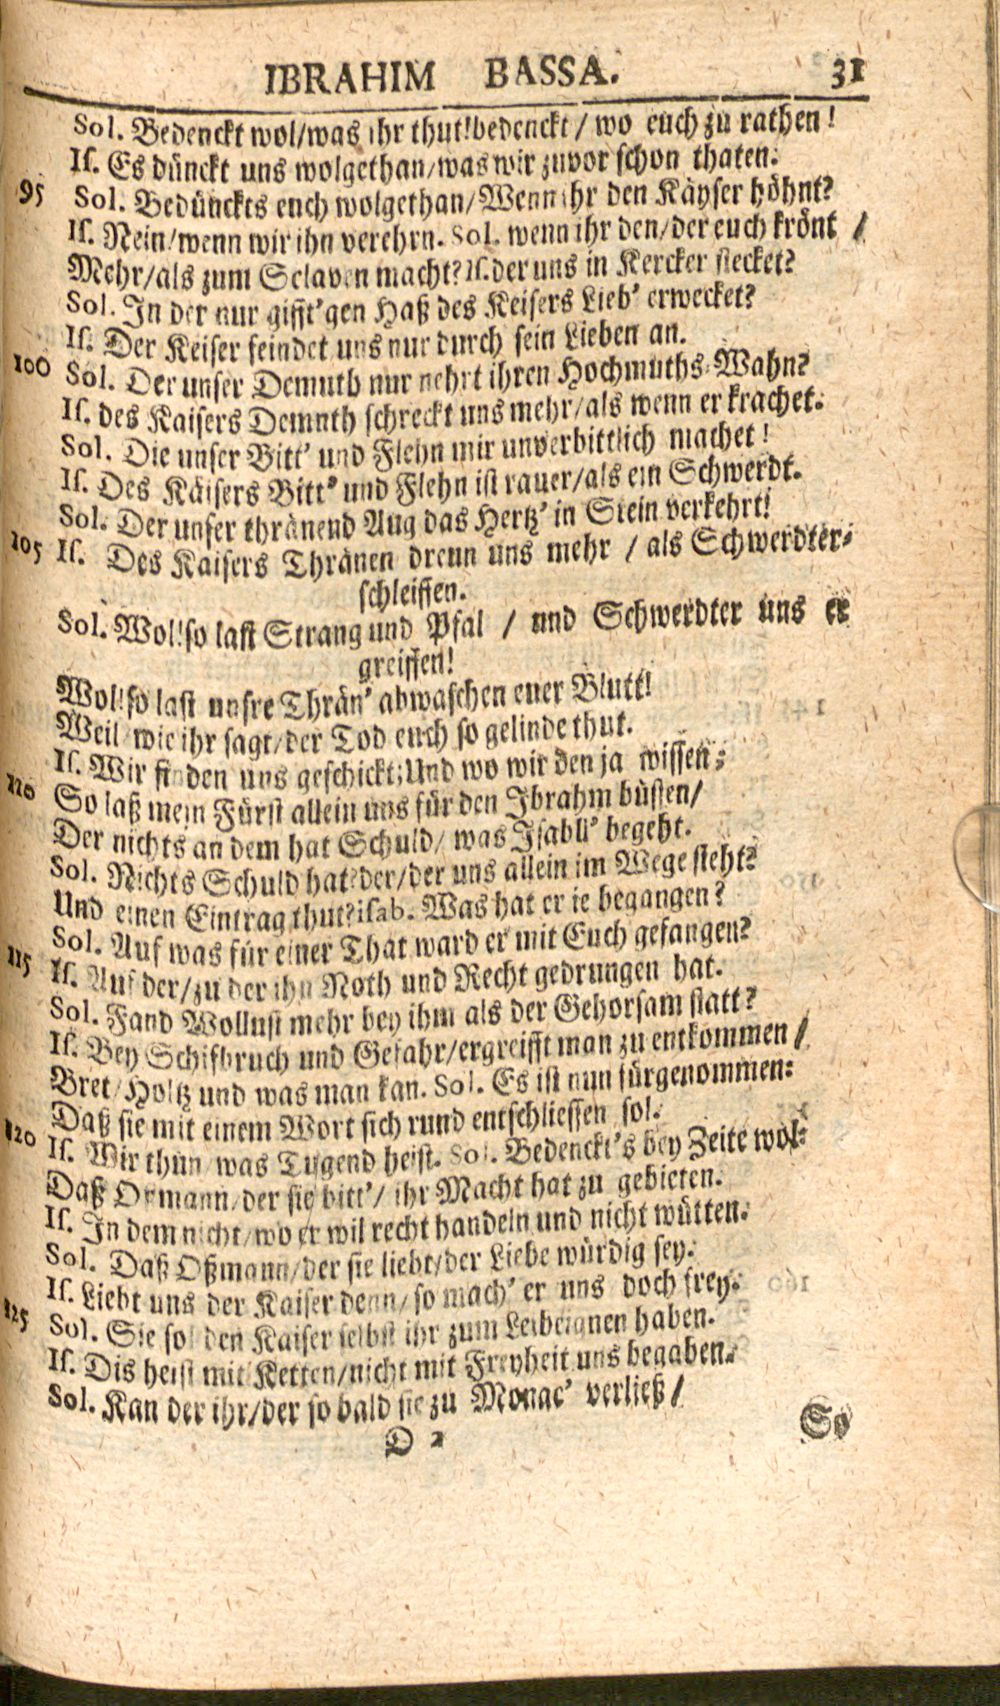 IBRAHIM BASSA. 31
Sol. Bedenckt wol/was ihr thut! bedenckt / wo euch zu rathen!
Is. Es dünckt uns wolgethan/was wir zuvor schon thaten.
95 Sol. Bedünckts euch wolgethan/Wenn ihr den Käyser höhnt?
Is. Nein/wenn wir ihn verehrn. Sol. wenn ihr den/der euch krönt /
Mehr/als zum Sclaven macht? Is. der uns in Kercker stecket?
Sol. In der nur gifft'gen Haß des Keisers Lieb' erwecket?
Is. Der Keiser feindet uns nur durch sein Lieben an.
100 Sol. Der unser Demuth nur nehrt ihren Hochmuths-Wahn?
Is. des Kaisers Demnth schreckt uns mehr/als wenn er krachet.
Sol. Die unser Bitt' und Flehn mir unverbittlich machet!
Is. Des Käisers Bitt' und Flehn ist rauer/als ein Schwerdt.
Sol. Der unser thränend Aug das Hertz' in Stein verkehrt!
105 Is. Des Kaisers Thränen dreun uns mehr / als Schwerdter-
schleiffen.
Sol. Wol! so last Strang und Pfal / und Schwerdter uns er
greiffen!
Wol! so last unsre Thrän' abwaschen euer Blutt!
Weil/wie ihr sagt/der Tod euch so gelinde thut.
Is. Wir finden uns geschickt; Und wo wir den ja wissen;
110 So laß mein Fürst allein uns für den Ibrahm büssen/
Der nichts an dem hat Schuld/ was Isabll' begeht.
Sol. Nichts Schuld hat? der/der uns allein im Wege steht?
Und einen Eintrag thut? isab. Was hat er ie begangen?
Sol. Auf was für einer That ward er mit Euch gefangen?
115 Is. Auf der/zu der ihn Noth und Recht gedrungen hat.
Sol. Fand Wollust mehr bey ihm als der Gehorsam statt?
Is. Bey Schifbruch und Gefahr/ergreifft man zu entkommen /
Bret/Holtz und was man kan. Sol. Es ist nun fürgenommen:
Daß sie mit einem Wort sich rund entschliessen sol.
120 Is. Wir thun/was Tugend heist. Sol. Bedenckt's bey Zeite wol:
Daß Osmann/der sie bitt'/ ihr Macht hat zu gebieten.
Is. In dem nicht/wo er wil recht handeln und nicht wütten.
Sol. Daß Oßmann/der sie liebt/der Liebe würdig sey.
Is. Liebt uns der Kaiser denn/so mach' er uns doch frey.
125 Sol. Sie sol den Kaiser selbst ihr zum Leibeignen haben.
Is. Dis heist mit Ketten/nicht mit Freyheit uns begaben.
Sol. Kan der ihr/der so bald sie zu Monac' verließ /
D 2 So